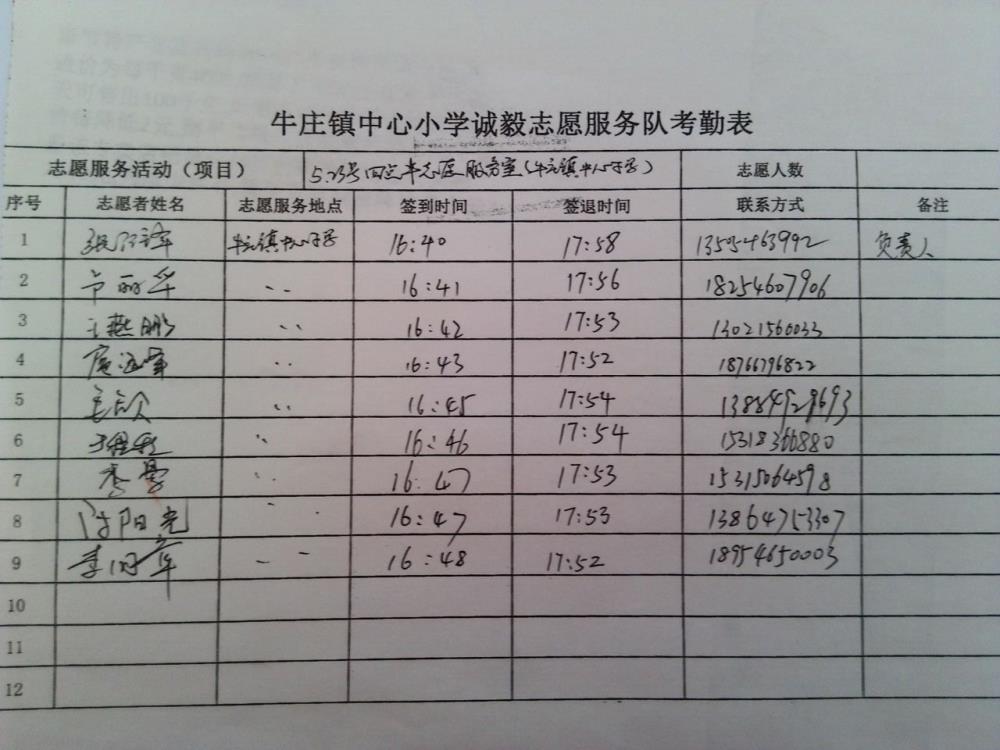 牛庄镇中心小学诚毅志愿服务队考勤表
志愿服务活动（项目） 5.23号四点半志愿服务室(牛庄镇中心小学) 志愿人数
序号 志愿者姓名 志愿服务地点 签到时间 签退时间 联系方式 备注
1 牛庄镇中心小学 16:40 17:58 13505463992 负责人
2 16:41 17:56 18254607906
3 王燕鹏 16:42 17:53 13021560033
4 16:43 17:52 18766796822
5 16:45 17:54 13884929693
6 16:46 17:54 15318366880
7 李曼 16:47 17:53 15315064598
8 许阳光 16:47 17:53 13864753307
9 16:48 17:52 18954650003
10
11
12